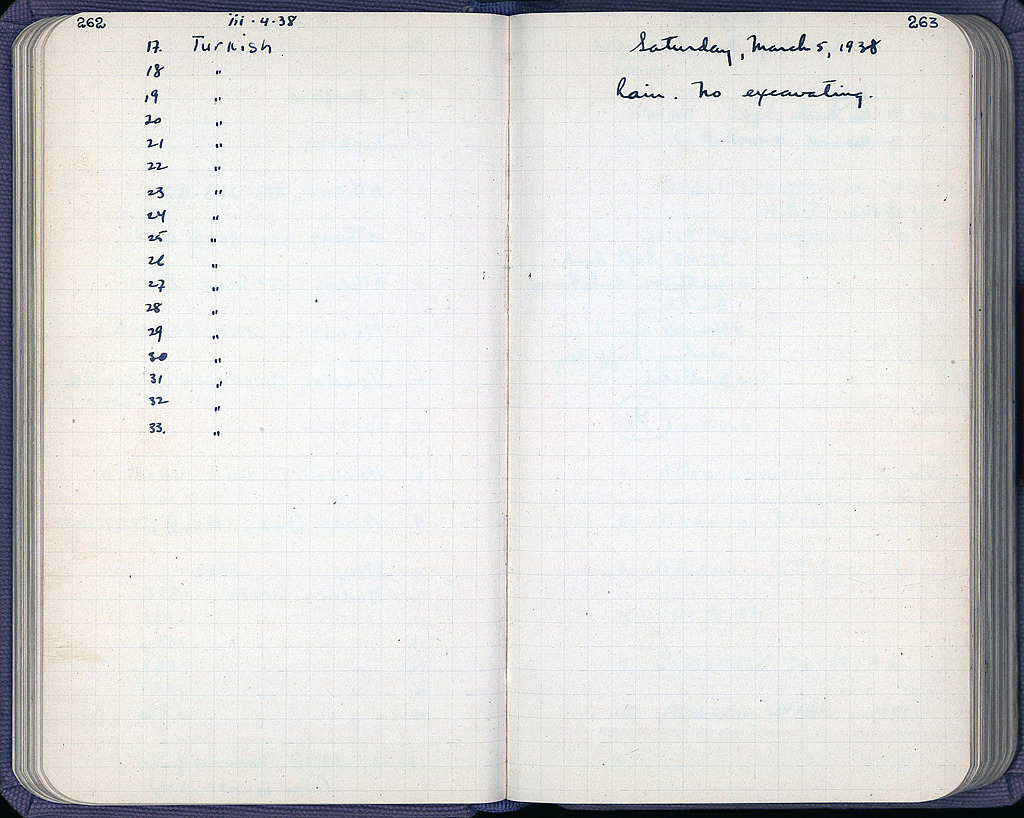 262
iii · 4 · 38
17. Turkish.
18 "
19 "
20 "
21 "
22 "
23 "
24 "
25 "
26 "
27 "
28 "
29 "
30 "
31 "
32 "
33. "
263
Saturday, March 5, 1938
Rain. No excavating.